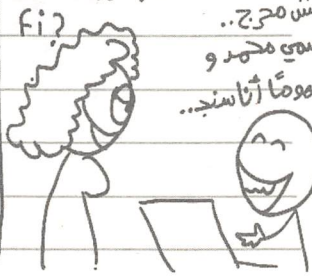 Fi?
مش محرج..
سمي محمد و
مومًا أنا سنجـ..